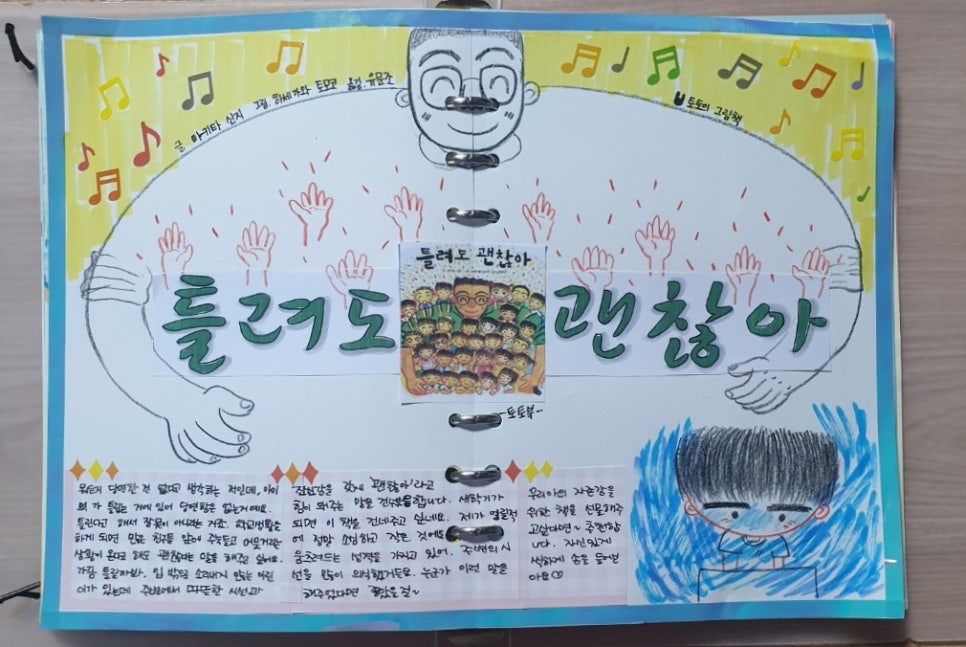 글 마키타 신지 그림 하세가와 토모코 옮김 유문조
토토의 그림책
틀려도 괜찮아
틀려도 괜찮아
-토토북-
뭐든지 당연한 건 없다고 생각하는 저인데, 아이
의 가 틀리는 거에 있어 당연함은 없는거예요.
틀린다고 해서 잘못이 아니라는 거죠. 학교생활을
하게 되면 많은 친구들 앞에 주눅들고 어렵거나
상황이 온다고 해도 괜찮다는 말을 해주고 싶어요.
가끔 틀릴까봐, 입 밖으로 소리내지 않는 어린
이가 있는데 주변에서 따뜻한 시선과
자신감을 갖게 '괜찮아'라고
힘이 돼주는 말을 건넸으면 합니다. 새학기가
되면 이 책을 건네주고 싶네요. 제가 열릭적
에 정말 소심하고 작은 것에도
움츠려드는 성격을 가지고 있어, 주변의 시
선을 많이 의식했거든요. 누군가 이런 말을
해주었다면 좋았을 걸~
우리아이 자존감을
위한 책을 선물해주
고싶다면~ 추천합
니다. 자신있게
씩씩하게 손을 들어보
아요